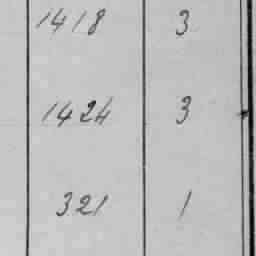 1418 3
1424 3
321 1